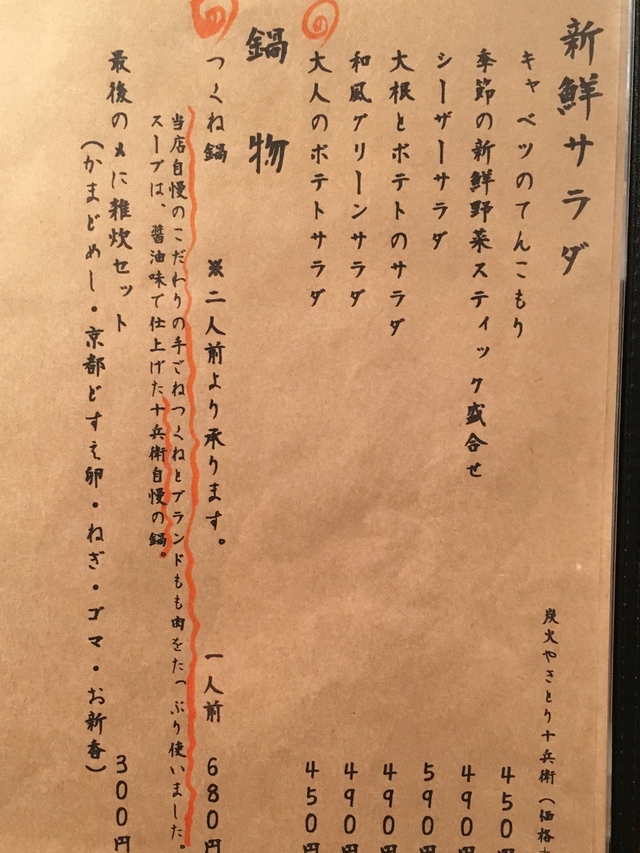 新鮮サラダ
炭火やきとり十兵衛（価格
キャベツのてんこもり 450円
季節の新鮮野菜スティック盛合せ 490円
シーザーサラダ 590円
大根とポテトのサラダ 490円
和風グリーンサラダ 490円
大人のポテトサラダ 450円
鍋物
つくね鍋 ※二人前より承ります。 一人前 680円
当店自慢のこだわりの手ごねつくねとブランドもも肉をたっぷり使いました。
スープは、醤油味で仕上げた十兵衛自慢の鍋。
最後の〆に雑炊セット 300円
（かまどめし・京都どすえ卵・ねぎ・ゴマ・お新香）